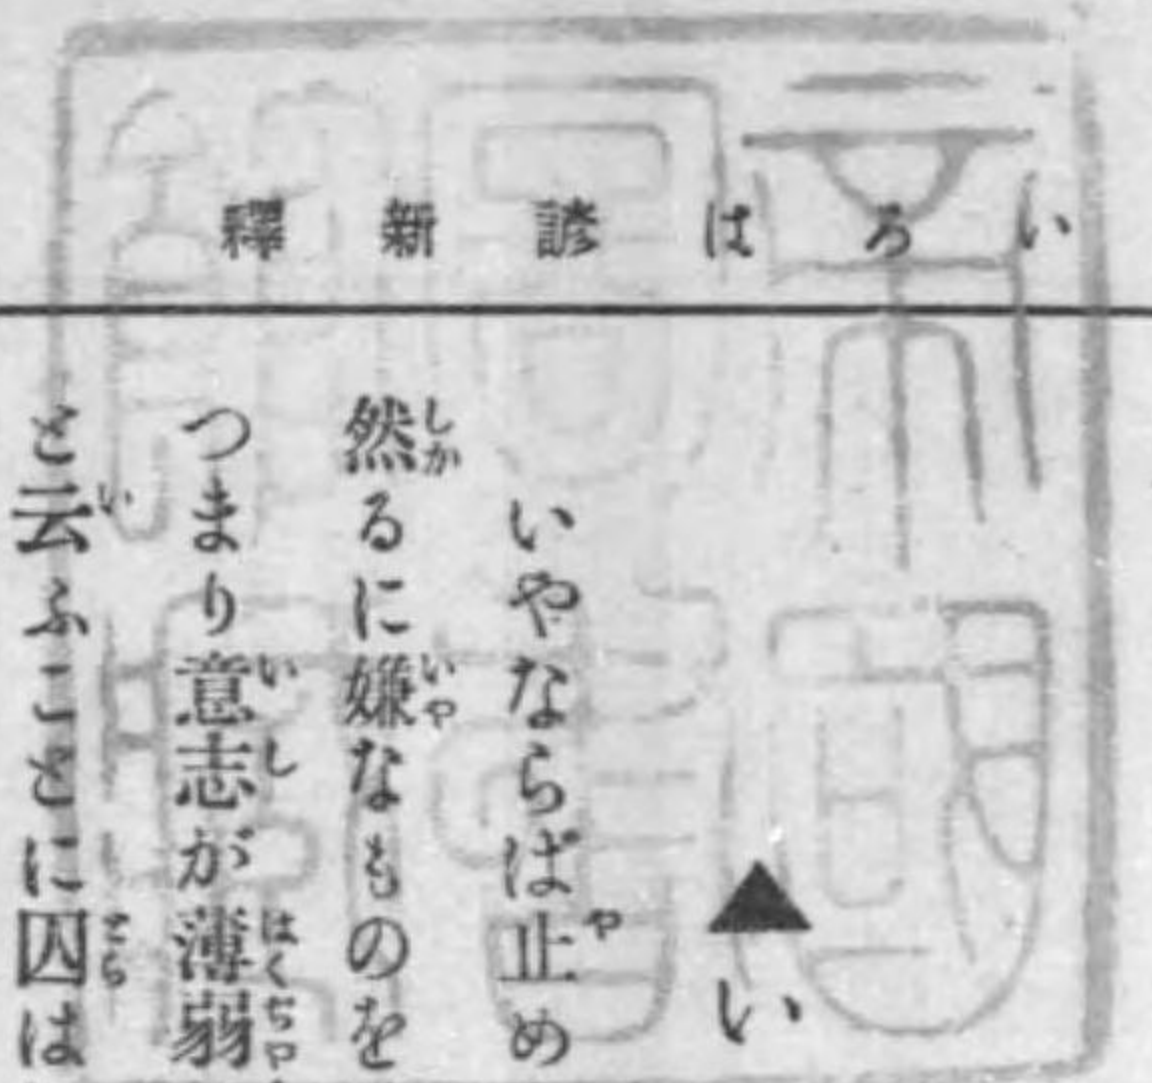 いろは諺新釋
▲い
いやならば止め
然るに嫌なものを
つまり意志が薄弱
と云ふことに囚は